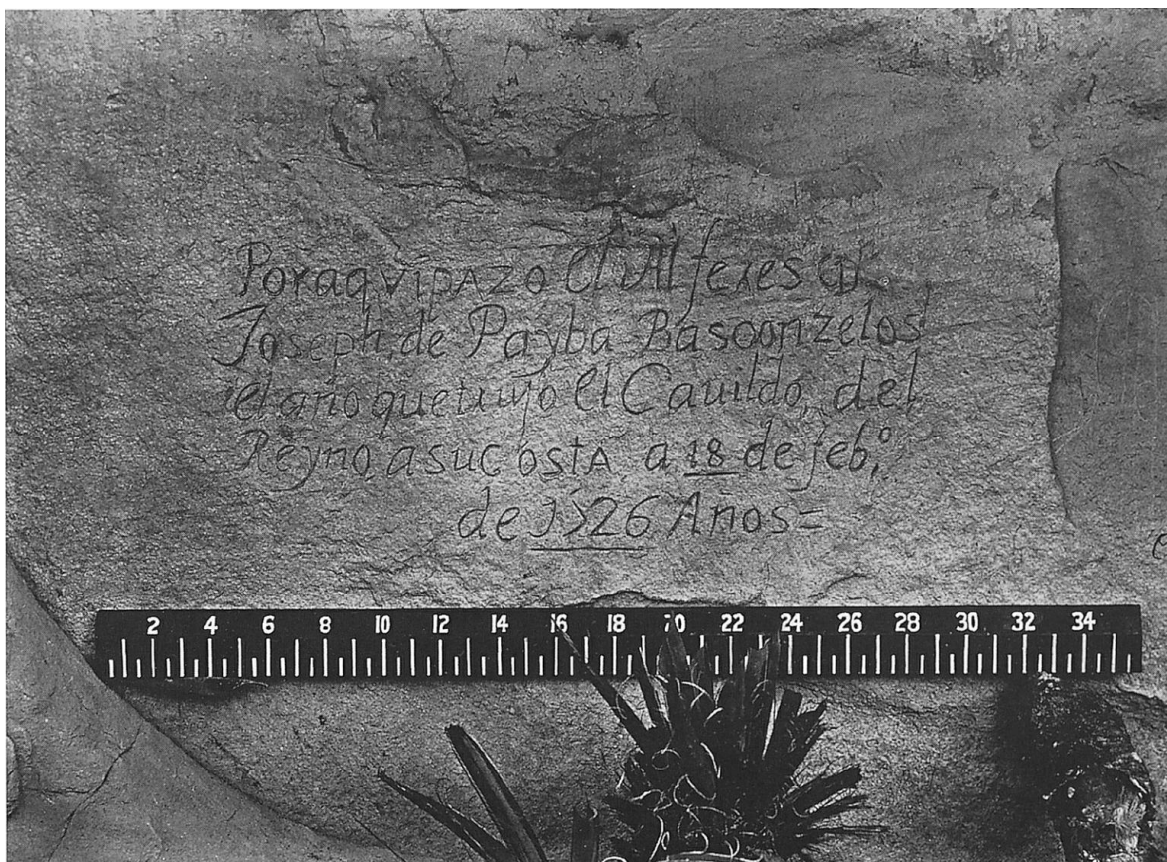 Por aqvi pAzo el Alferes Dn
Joseph, de Payba Basconzelos
el año que tuvo el Cauildo, del
Reyno, a su CostA a 18 de feb,º
de 1526 Años=
2 4 6 8 10 12 14 16 18 20 22 24 26 28 30 32 34